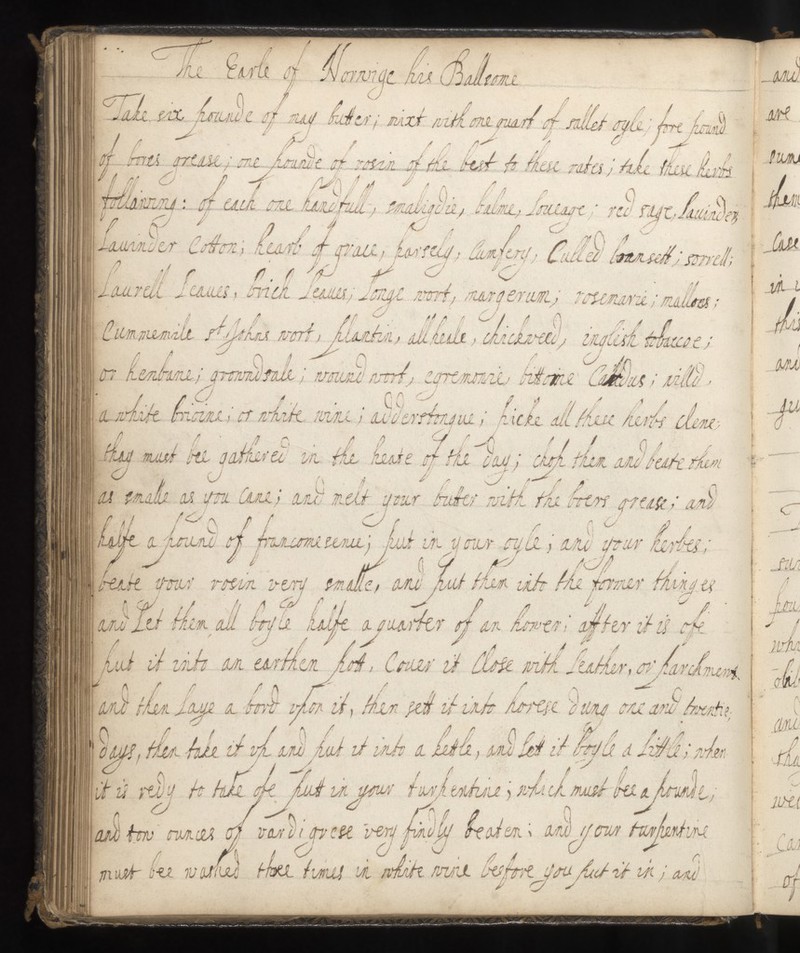 The Earle of Norwige his Ballsome
Take six pounde of may butter; mixt with one quart of sallet oyle; fore pound
of bores grease; one pounde of rosin of the best to these rates; take these herbs
following: of each one handfull, smaligdie, balme, Loveage; red sage, Lavinder,
Lavinder Cotton; hearb of grace, parsely, Cumfery, Culled bonsett; sorrell;
Laurell Leaves, brich Leaves; Longe wort, margerum; rosemarie; mallows;
Cummemile st Johns wort, plantin, allheale, chickweed, inglish tobaccoe;
or henbane; grownd sale; wound wort, egremonie, bittonie Carddus; willd,
a white brioine; or white vine; adderstongue; picke all these herbs clene,
thay must bee gathered in the heate of the day; chop them and beate them
as smalle as you Cane; and melt your butter with the boers grease; and
halfe a pound of francomesenue; put in your oyle; and your herbes;
beate your rosin very smalle, and put them into the former thinges
and Let them all boyle halfe a quarter of an hower; affter it is ofe
put it into an earthen pott, Cover it Close with Leather, or parchment
and then Laye a bord upon it, then sett it into horese dung one and twentie;
days, then take it up and put it into a kettle, and Lett it boyle a Little; when
it is redy to take ofe putt in your turpentine; which must bee a pounde;
and tow ounces of vardigrese very findly beaten; and your turpentine
must bee washed thre times in white wine beffore you put it in; and
and
are
them
Case
in
this
and